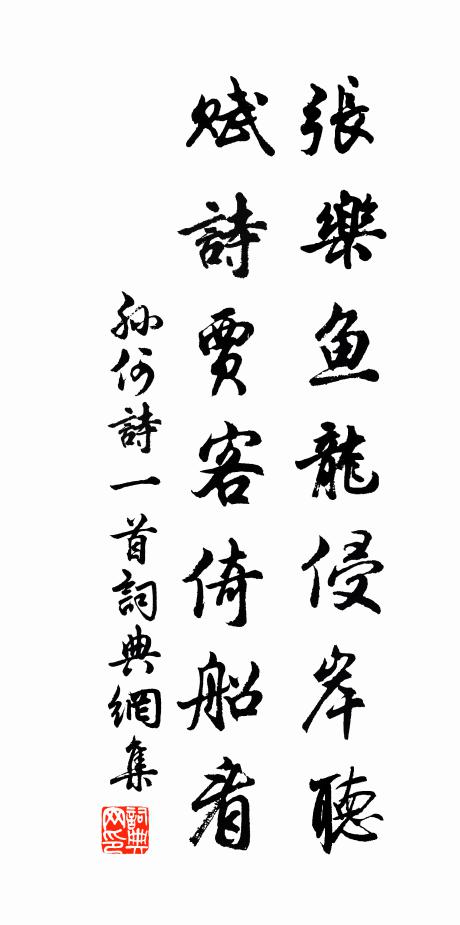 張樂鱼龍侵岸聴
賦詩賈客倚船看
孫何詩一首詞典網集
詞典网印